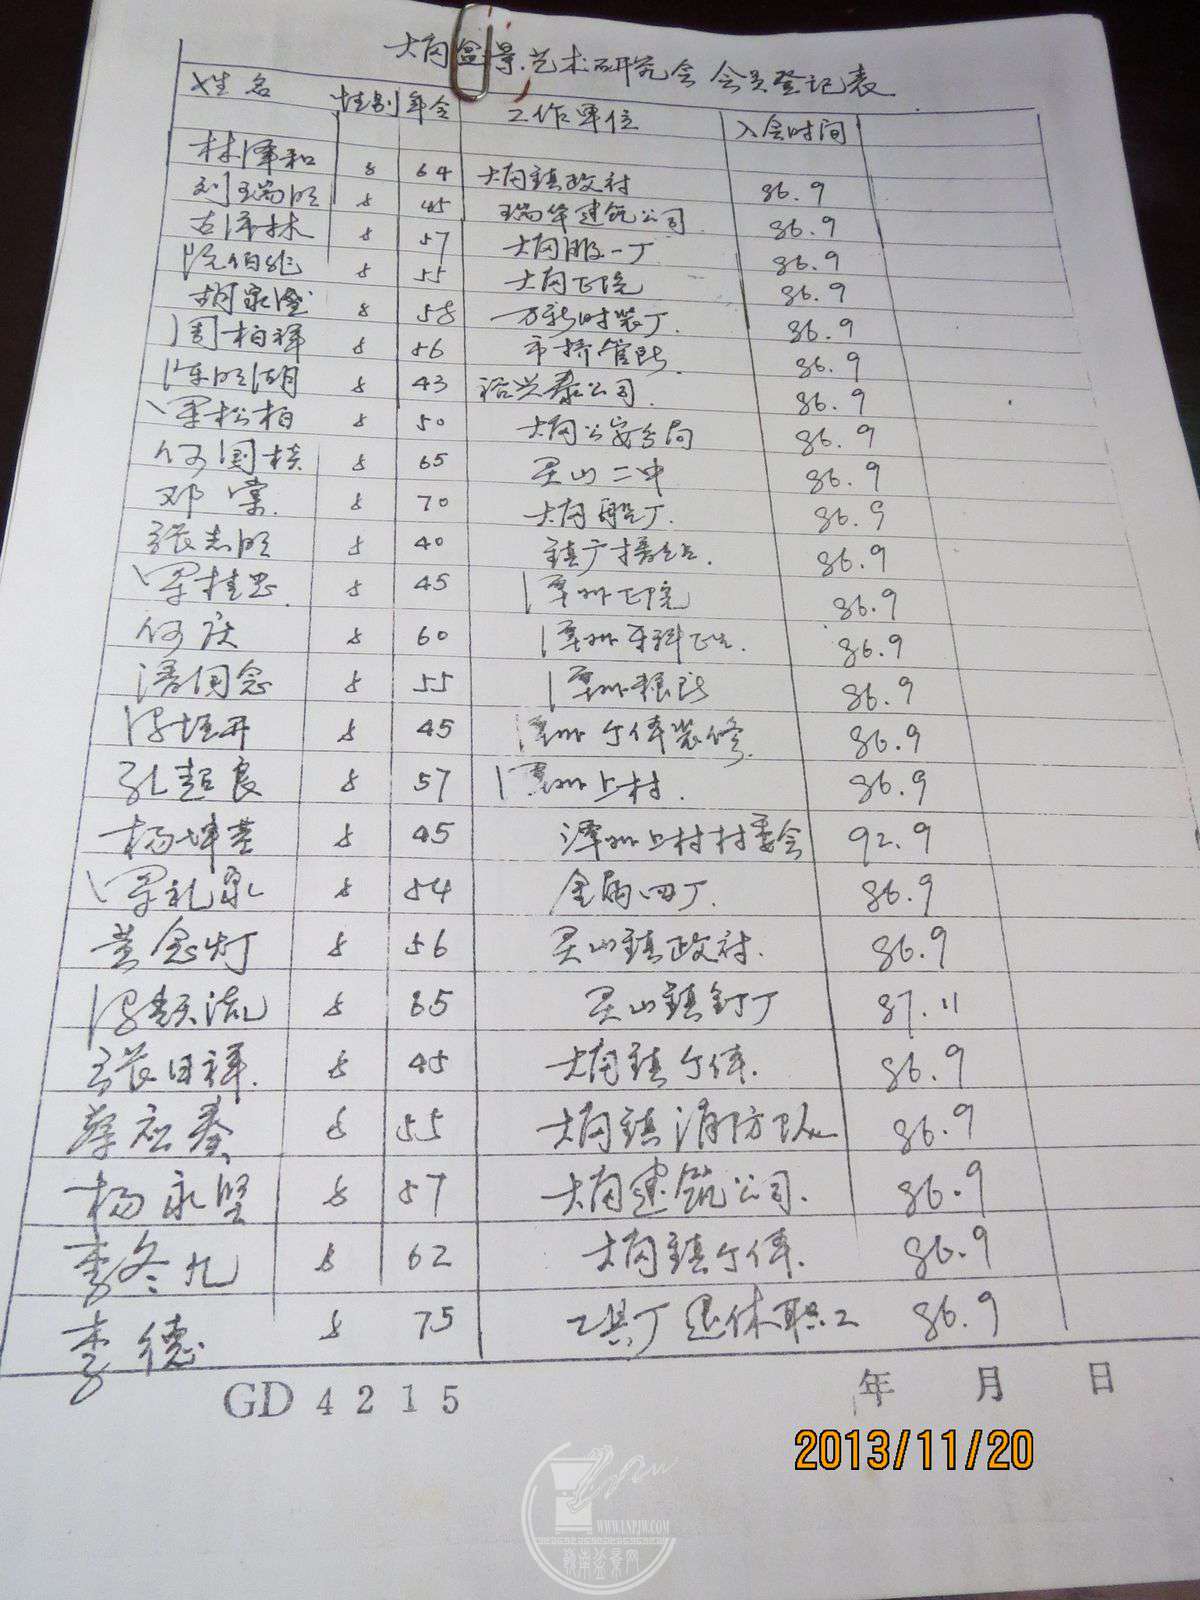 大岗盆景艺术研究会会员登记表
姓名 性别 年令 工作单位 入会时间
林泽和 64 大岗镇政府 86.9
刘瑞明 45 瑞华建筑公司 86.9
古泽林 57 大岗服一厂 86.9
阮伯兆 55 大岗医院 86.9
胡泉澄 58 万新时装厂 86.9
周柏祥 56 市桥管所 86.9
陈明湖 43 裕兴泰公司 86.9
覃松柏 50 大岗公安分局 86.9
何国核 65 灵山二中 86.9
邓棠 70 大岗船厂 86.9
张志明 40 镇广播站 86.9
覃桂忠 45 潭洲医院 86.9
何庆 60 潭洲牙科医生 86.9
潘国念 55 潭洲粮所 86.9
冯旺开 45 潭洲个体装修 86.9
孔超良 57 潭洲上村 86.9
杨坤基 45 潭洲上村村委会 92.9
覃礼泉 54 金岗四厂 86.9
黄念灯 56 灵山镇政府 86.9
冯颖流 65 灵山镇钉厂 87.11
张日祥 45 大岗镇个体 86.9
蔡启泰 55 大岗镇消防队 86.9
杨永坚 57 大岗建筑公司 86.9
李冬九 62 大岗镇个体 86.9
李德 75 工具厂退休职工 86.9
GD 4215 年 月 日
2013/11/20
WWW.LNPJW.COM
岭南盆景网